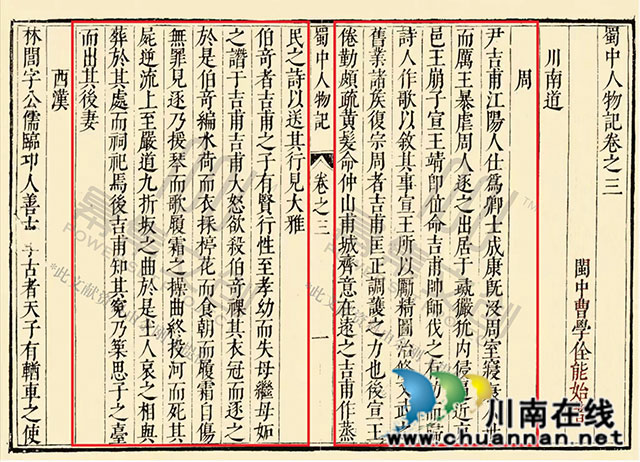 蜀中人物記卷之三
閩中曹學佺能始
川南道
周
尹吉甫江陽人仕爲卿士成康旣没周室寖
而厲王暴虐周人逐之出居于彘玁狁内侵逼近
邑王崩子宣王靖卽位命吉甫帥師伐之有功而歸
詩人作歌以敘其事宣王所以勵精圖治修文武
舊業諸族復宗周者吉甫匡正調護之力也後宣王
倦勤頗疏黃髮命仲山甫城齊意在遠之吉甫作蒸
民之詩以送其行見大雅
蜀中人物記 卷之三 一
伯奇者吉甫之子有賢行性至孝幼而失母繼母妬
之譖于吉甫吉甫大怒欲殺伯奇裸其衣冠而逐之
於是伯奇編水荷而衣採楟花而食朝而履霜自傷
無罪見逐乃援琴而歌履霜之操曲終投河而死其
屍逆流上至嚴道九折坂之曲於是土人哀之相與
葬於其處而祠祀焉後吉甫知其寃乃築思子之臺
而出其後妻
西漢
林閭字公儒臨邛人善古 古者天子有輶車之使
川南在线
www.chuannan.net